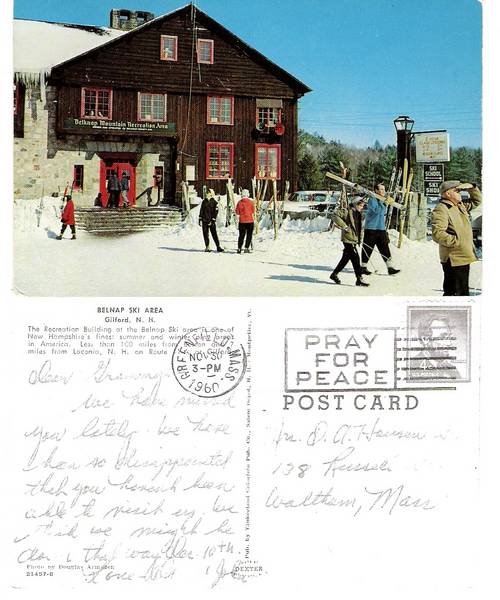 Belknap Mountain Recreation Area
SKI
SCHOOL
SKI
SHOP
BELNAP SKI AREA
Gilford, N. H.
The Recreation Building at the Belnap Ski area is one of
New Hampshire's finest summer and winter areas
in America. Less than 100 miles from Boston and
miles from Laconia, N. H. on Route
Dear Grammy
We have missed
you lately. We have
been so disappointed
that you haven't been
able to visit us. We
think we might be
down that way Dec. 10th.
Love
Photo by Douglas Armsden
21457-B
Pub. by
DEXTER
MASS.
NOV 30
3-PM
1960
PRAY
FOR
PEACE
POST CARD
Mrs. D. A. Hansen
138 Russell
Waltham, Mass